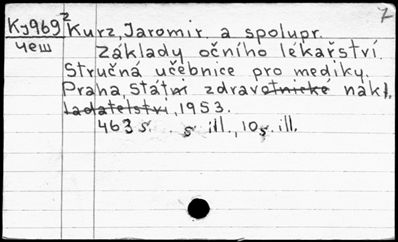 Ky969² Kurz, Jaromír, a spolupr. 7
чеш Základy očního lékařství.
Stručná učebnice pro mediky.
Praha, Státní zdravotnické nakl.
ladatelství, 1953.
463 s. s ill., 10 s. ill.